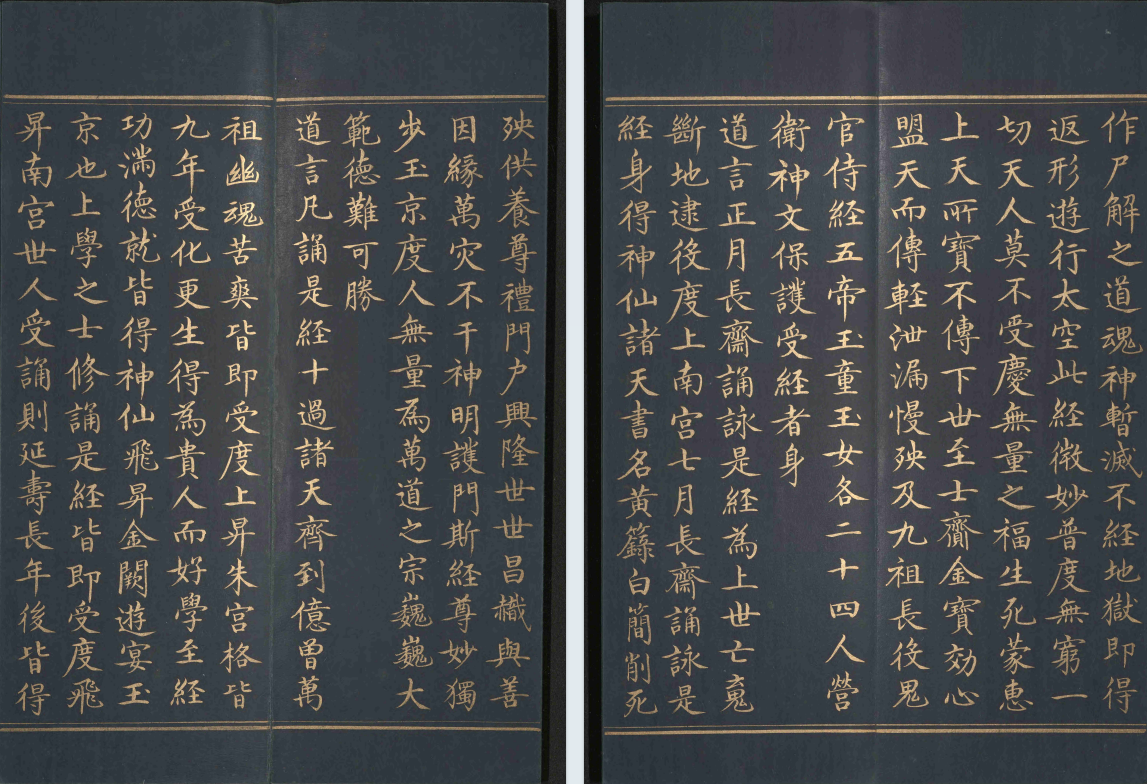 殃供養尊禮門户興隆世世昌熾與善
因緣萬灾不干神明護門斯経尊妙獨
步玉京度人無量為萬道之宗巍巍大
範德難可勝
道言凡誦是経十過諸天齊到億曾萬
祖幽魂苦爽皆即受度上昇朱宮格皆
九年受化更生得為貴人而好學至経
功滿德就皆得神仙飛昇金闕遊宴玉
京也上學之士修誦是経皆即受度飛
昇南宮世人受誦則延壽長年後皆得
作尸解之道魂神暫滅不経地獄即得
返形遊行太空此経微妙普度無窮一
切天人莫不受慶無量之福生死蒙惠
上天所寶不傳下世至士齎金寶効心
盟天而傳軽泄漏慢殃及九祖長役鬼
官侍経五帝玉童玉女各二十四人營
衛神文保護受経者身
道言正月長齋誦詠是経為上世亡䰟
斷地逮役度上南宮七月長齋誦詠是
経身得神仙諸天書名黄籙白簡削死